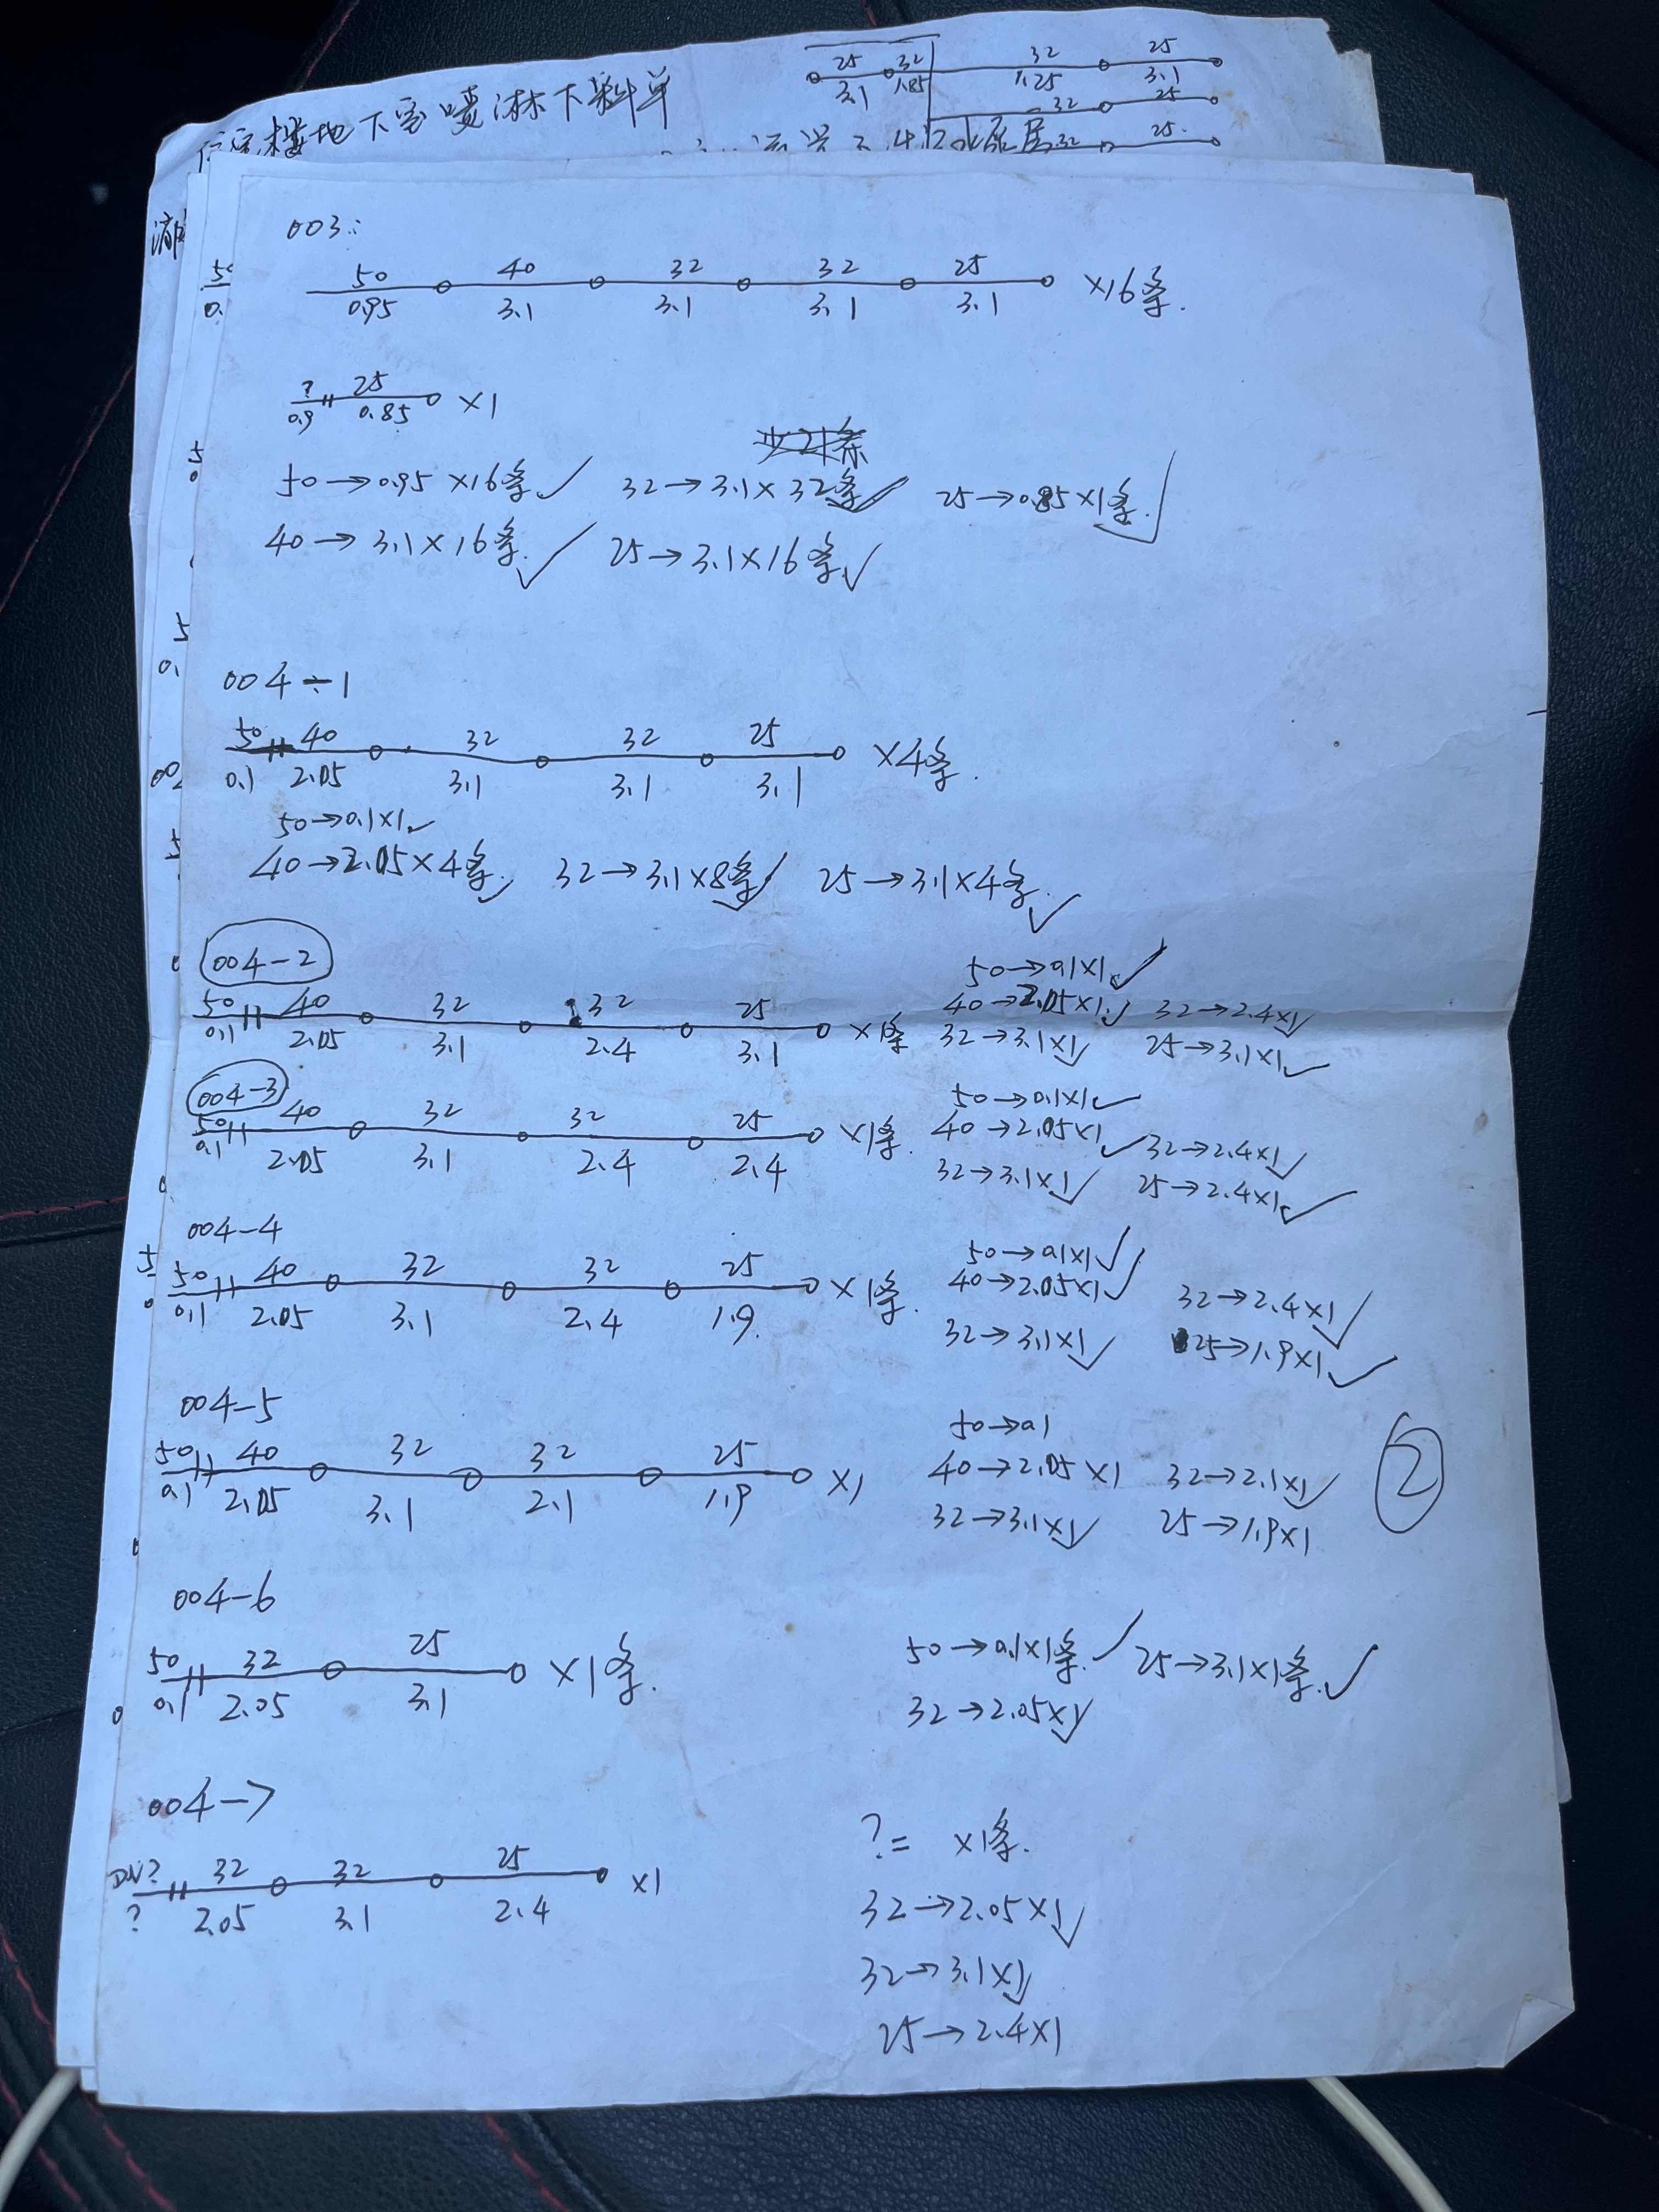 25 32 32 25
3.1 1.85 1.25 3.1
32 25
32 25
楼地下室喷淋下料单
003:
50 40 32 32 25
0.95 3.1 3.1 3.1 3.1 ×16条.
? 25
0.9 0.85 ×1
50→0.95×16条✓ 32→3.1×32条✓ 25→0.85×1条.✓
40→3.1×16条.✓ 25→3.1×16条✓
004-1
50 40 32 32 25
0.1 2.05 3.1 3.1 3.1 ×4条.
50→0.1×1✓
40→2.05×4条✓ 32→3.1×8条✓ 25→3.1×4条✓
004-2
50 40 32 32 25
0.1 2.05 3.1 2.4 3.1 ×1条
50→0.1×1✓
40→2.05×1✓ 32→2.4×1✓
32→3.1×1✓ 25→3.1×1✓
004-3
50 40 32 32 25
0.1 2.05 3.1 2.4 2.4 ×1条.
50→0.1×1✓
40→2.05×1✓ 32→2.4×1✓
32→3.1×1✓ 25→2.4×1✓
004-4
50 40 32 32 25
0.1 2.05 3.1 2.4 1.9. ×1条.
50→0.1×1✓
40→2.05×1✓ 32→2.4×1✓
32→3.1×1✓ 25→1.9×1✓
004-5
50 40 32 32 25
0.1 2.05 3.1 2.1 1.9 ×1
50→0.1
40→2.05×1 32→2.1×1✓
32→3.1×1✓ 25→1.9×1
②
004-6
50 32 25
0.1 2.05 3.1 ×1条.
50→0.1×1条.✓ 25→3.1×1条.✓
32→2.05×1✓
004-7
DN? 32 32 25
? 2.05 3.1 2.4 ×1
?= ×1条.
32→2.05×1✓
32→3.1×1✓
25→2.4×1